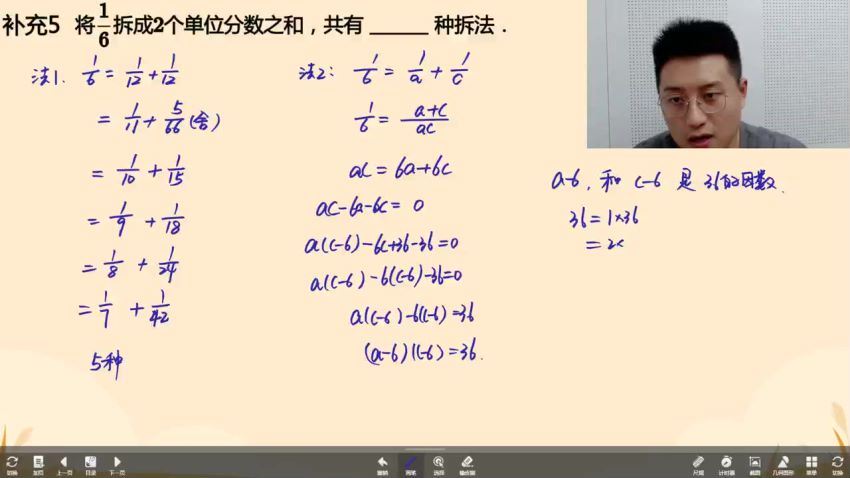 补充5 将1/6拆成2个单位分数之和，共有 ______ 种拆法．
法1. 1/6 = 1/12 + 1/12
= 1/11 + 5/66 (舍)
= 1/10 + 1/15
= 1/9 + 1/18
= 1/8 + 1/24
= 1/7 + 1/42
5种
法2: 1/6 = 1/a + 1/c
1/6 = a+c/ac
ac = 6a+6c
ac-6a-6c = 0
a(c-6)-6c+36-36=0
a(c-6)-6(c-6)-36=0
a(c-6)-6(c-6)=36
(a-6)(c-6)=36.
a-6, 和 c-6 是 36的因数.
36=1×36
=2×
切换 加页 上一页 目录 下一页
撤销 画笔 选择 橡皮擦
尺规 计时器 截图 几何图形 菜单 切换